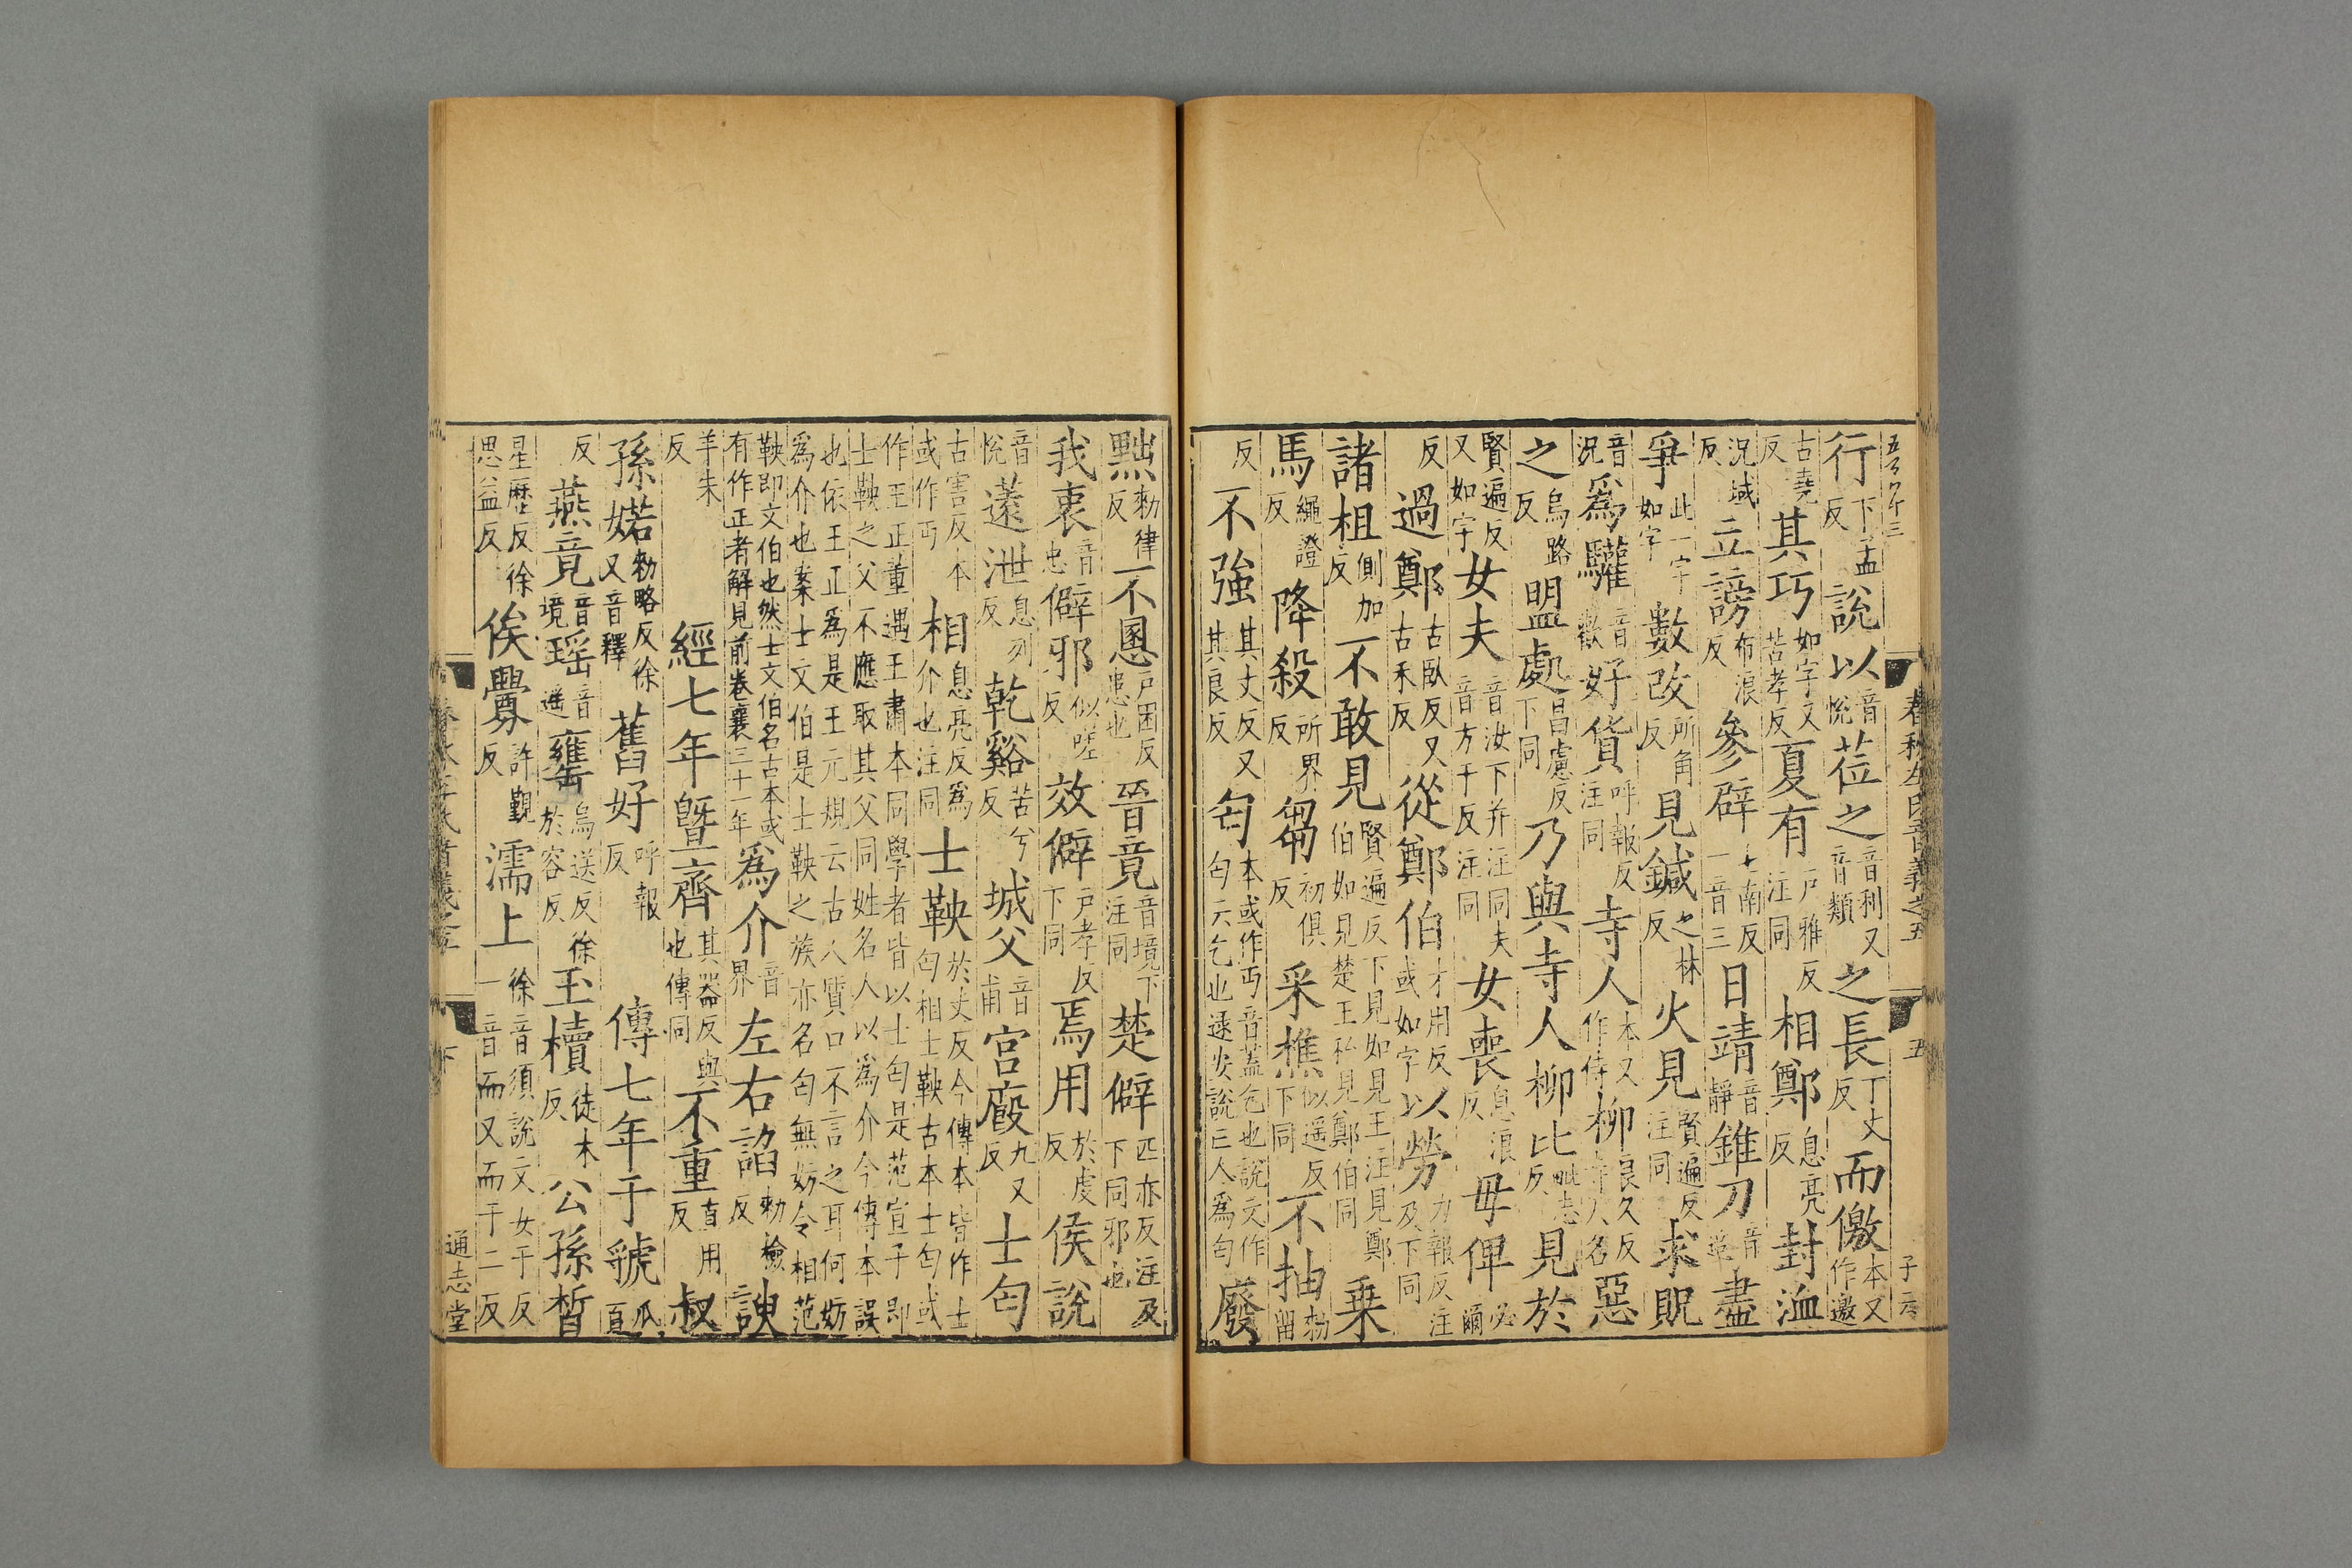 春秋左氏音義之五 五
行下孟反說以音悅莅之音利又音類之長丁丈反而儌本又作邀
古堯反其巧如字又苦孝反夏有戶雅反注同相鄭息亮反封洫
況域反立謗布浪反參辟七南反一音三日靖音靜錐刀音隹盡
爭此一字如字數改所角反見鍼之林反火見賢遍反注同求貺
音況爲驩音歡好貨呼報反注同寺人本又作侍柳良久反寺人名惡
之烏路反盟處昌慮反下同乃與寺人柳比毗志反見於
賢遍反又如字女夫音汝下并注同夫音方于反注同女喪息浪反毋俾必爾
反過鄭古臥反又古禾反從鄭伯才用反或如字以勞力報反注及下同
諸柤側加反不敢見賢遍反下見如見王注見鄭伯如見楚王私見鄭伯同乗
馬繩證反降殺所界反芻初俱反采樵似遥反下同不抽勑留
反不強其丈反又其良反匄本或作丐音蓋乞也說文作匄云乞也逯安說亡人爲匄廢
黜勑律反不慁戶困反患也晉竟音境下注同楚僻匹亦反注及下同邪也
我衷音忠僻邪似嗟反效僻戶孝反下同焉用於虔反侯說
音悅薳泄息列反乾谿苦兮反城父音甫宮廏九又反士匄
古害反本或作丐相息亮反爲介也注同士鞅於丈反今傳本皆作士匄相士鞅古本士匄或
作王正董遇王肅本同學者皆以士匄是范宣子即士鞅之父不應取其父同姓名人以爲介今傳本誤
也依王正爲是王元規云古人質口不言之耳何妨爲介也案士文伯是士鞅之族亦名匄無妨令相范
鞅即文伯也然士文伯名古本或有作正者解見前卷襄三十一年爲介音界左右諂勑檢反諛
羊朱反經七年曁齊其器反與也傳同不重直用反叔
孫婼勑略反徐又音釋舊好呼報反傳七年于虢瓜百
反燕竟音境瑤音遥甕烏送反徐於容反玉櫝徒木反公孫晳
星歷反徐思益反俟釁許覲反濡上徐音須說文女于反一音而又而于二反
通志堂